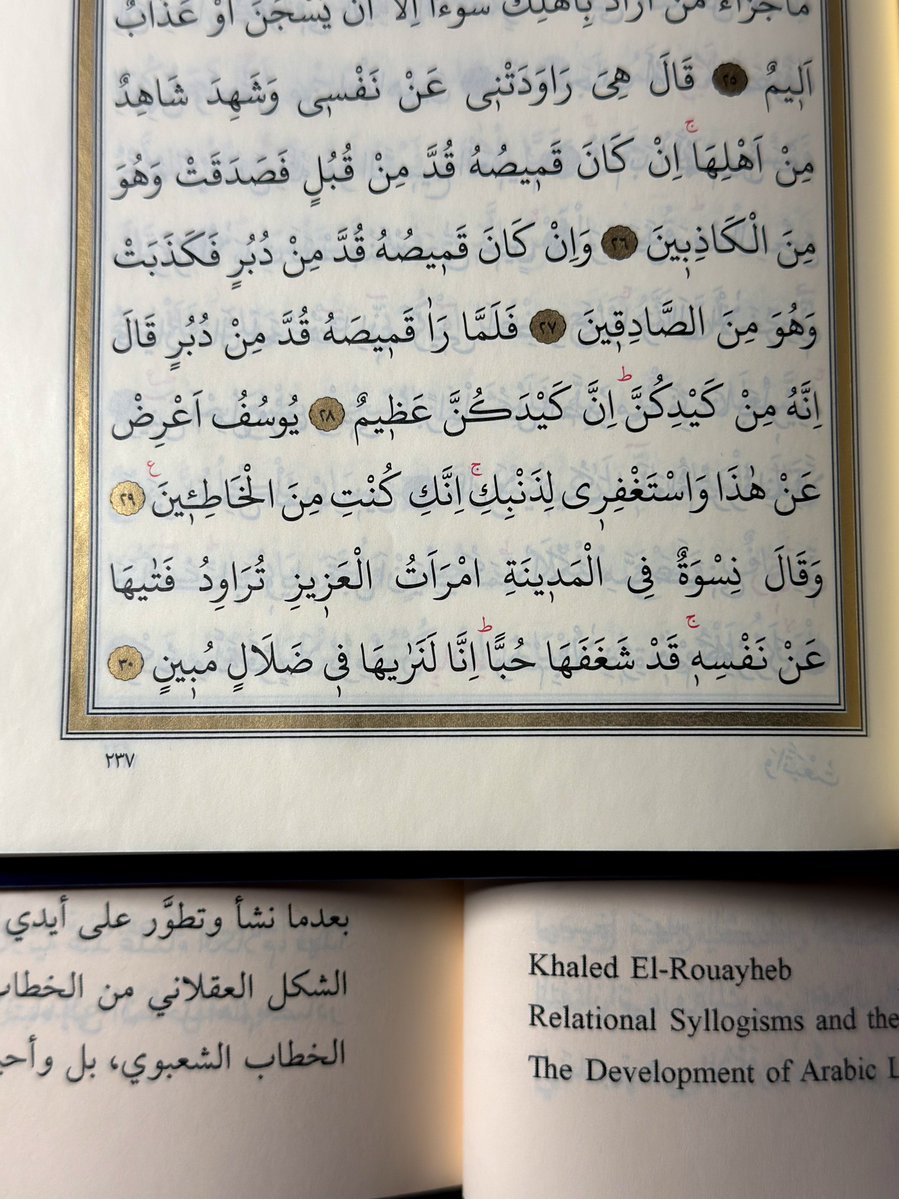 مَاجَزَاءُ مَنْ اَرَادَ بِاَهْلِكَ سُوءًا اِلَّا اَنْ يُسْجَنَ اَوْ عَذَابٌ
اَلٖيمٌ ٢٥ قَالَ هِىَ رَاوَدَتْنٖى عَنْ نَفْسٖى وَشَهِدَ شَاهِدٌ
مِنْ اَهْلِهَا ۚ اِنْ كَانَ قَمٖيصُهُ قُدَّ مِنْ قُبُلٍ فَصَدَقَتْ وَهُوَ
مِنَ الْكَاذِبٖينَ ٢٦ وَاِنْ كَانَ قَمٖيصُهُ قُدَّ مِنْ دُبُرٍ فَكَذَبَتْ
وَهُوَ مِنَ الصَّادِقٖينَ ٢٧ فَلَمَّا رَاٰ قَمٖيصَهُ قُدَّ مِنْ دُبُرٍ قَالَ
اِنَّهُ مِنْ كَيْدِكُنَّ ط اِنَّ كَيْدَكُنَّ عَظٖيمٌ ٢٨ يُوسُفُ اَعْرِضْ
عَنْ هٰذَا وَاسْتَغْفِرٖى لِذَنْبِكِ ۚ اِنَّكِ كُنْتِ مِنَ الْخَاطِـٖٔينَ ع ٢٩
وَقَالَ نِسْوَةٌ فِى الْمَدٖينَةِ امْرَاَتُ الْعَزٖيزِ تُرَاوِدُ فَتٰيهَا
عَنْ نَفْسِهٖ ۚ قَدْ شَغَفَهَا حُبًّا ط اِنَّا لَنَرٰيهَا فٖى ضَلَالٍ مُبٖينٍ ٣٠
٢٣٧
بعدما نشأ وتطوَّر على أيدي
الشكل العقلاني من الخطاب
الخطاب الشعبوي، بل وأحي
Khaled El-Rouayheb
Relational Syllogisms and the
The Development of Arabic L